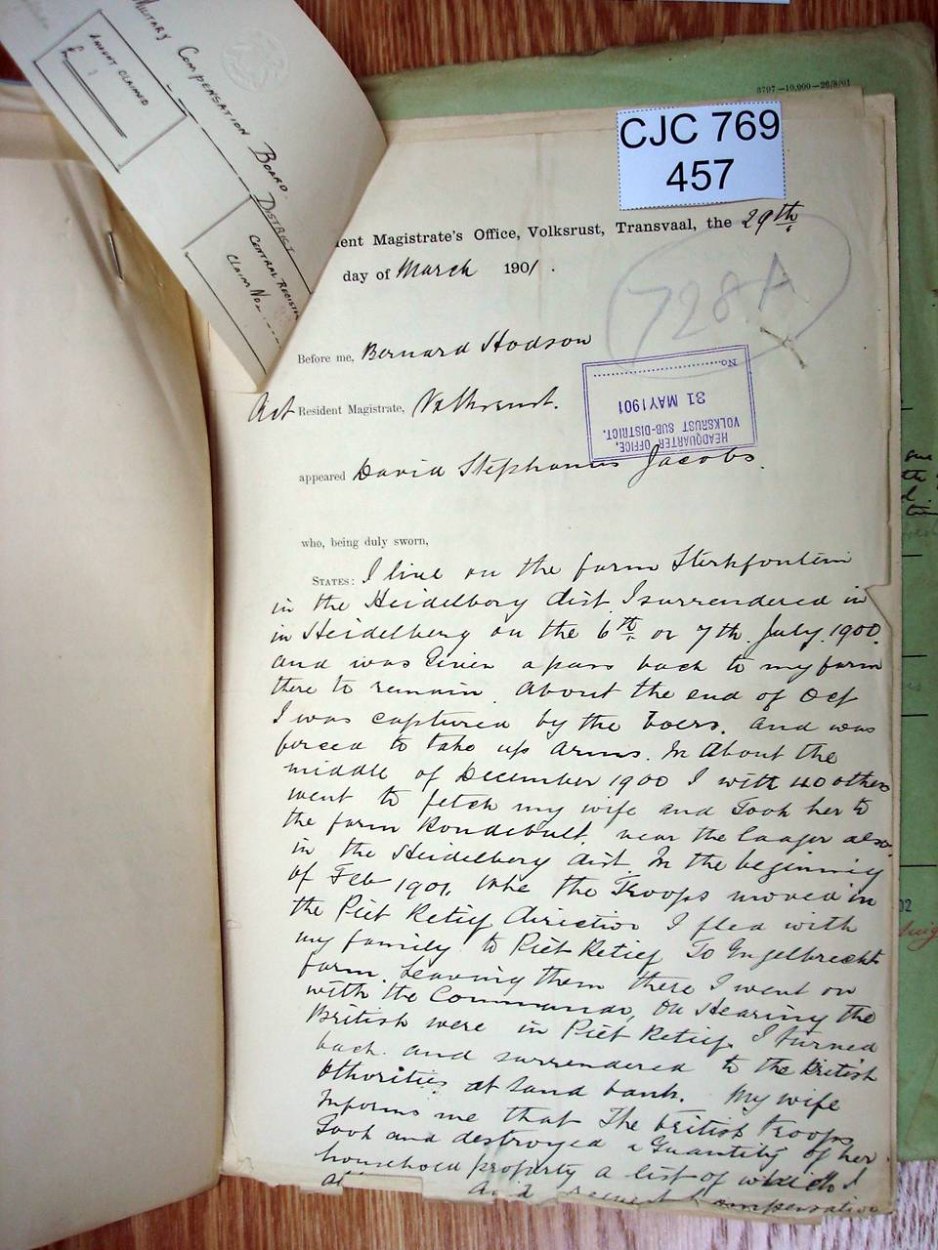 MILITARY COMPENSATION BOARD.
DISTRICT
AMOUNT CLAIMED
£
CENTRAL REGISTER
CLAIM No.
3797—10,000—26/8/01
CJC 769
457
dent Magistrate's Office, Volksrust, Transvaal, the 29th
day of March 1901.
728A
Before me, Bernard Hodson
Act Resident Magistrate, Volksrust.
HEADQUARTER OFFICE,
VOLKSRUST SUB-DISTRICT.
31 MAY 1901
No.
appeared David Stephanus Jacobs.
who, being duly sworn,
STATES: I live on the farm Sterkfontein
in the Heidelberg dist I surrendered in
in Heidelberg on the 6th or 7th July 1900
and was Given a pass back to my farm
there to remain. About the end of Oct
I was captured by the boers, and was
forced to take up arms. In About the
middle of December 1900 I with 40 others
went to fetch my wife and Took her to
the farm Rondebult, near the laager also
in the Heidelberg dist. In the beginning
of Feb 1901, whe the Troops moved in
the Piet Retief direction I fled with
my family to Piet Retief To Engelbrecht
farm. Leaving them there I went on
with the Commando, On Hearing the
British were in Piet Retief I turned
back and surrendered to the British
Othorities at Sand bank. My wife
Informs me that The british Troops
Took and destroyed a Quantity of her
household property a list of which I
and request compensation